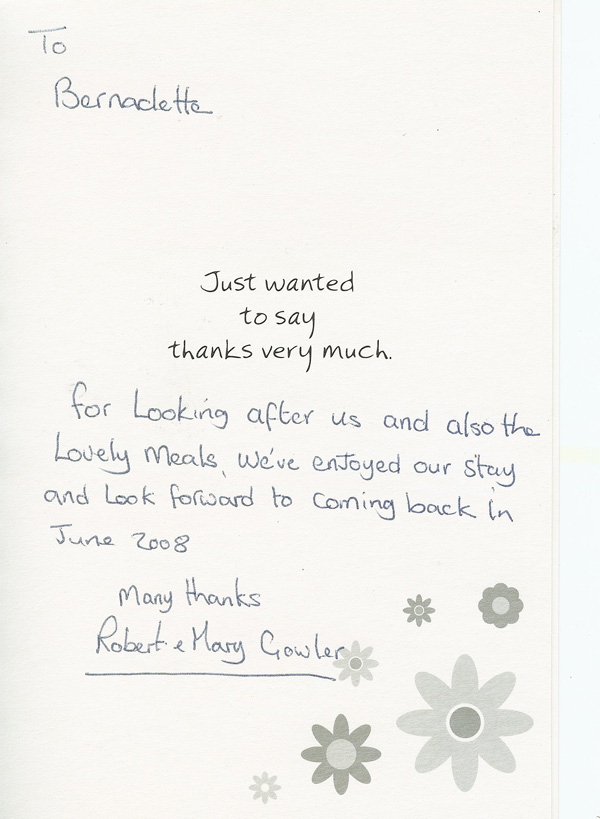 To
Bernadette
Just wanted
to say
thanks very much.
for Looking after us and also the
Lovely Meals, We've enJoyed our stay
and Look forward to coming back in
June 2008
Many thanks
Robert & Mary Gowler